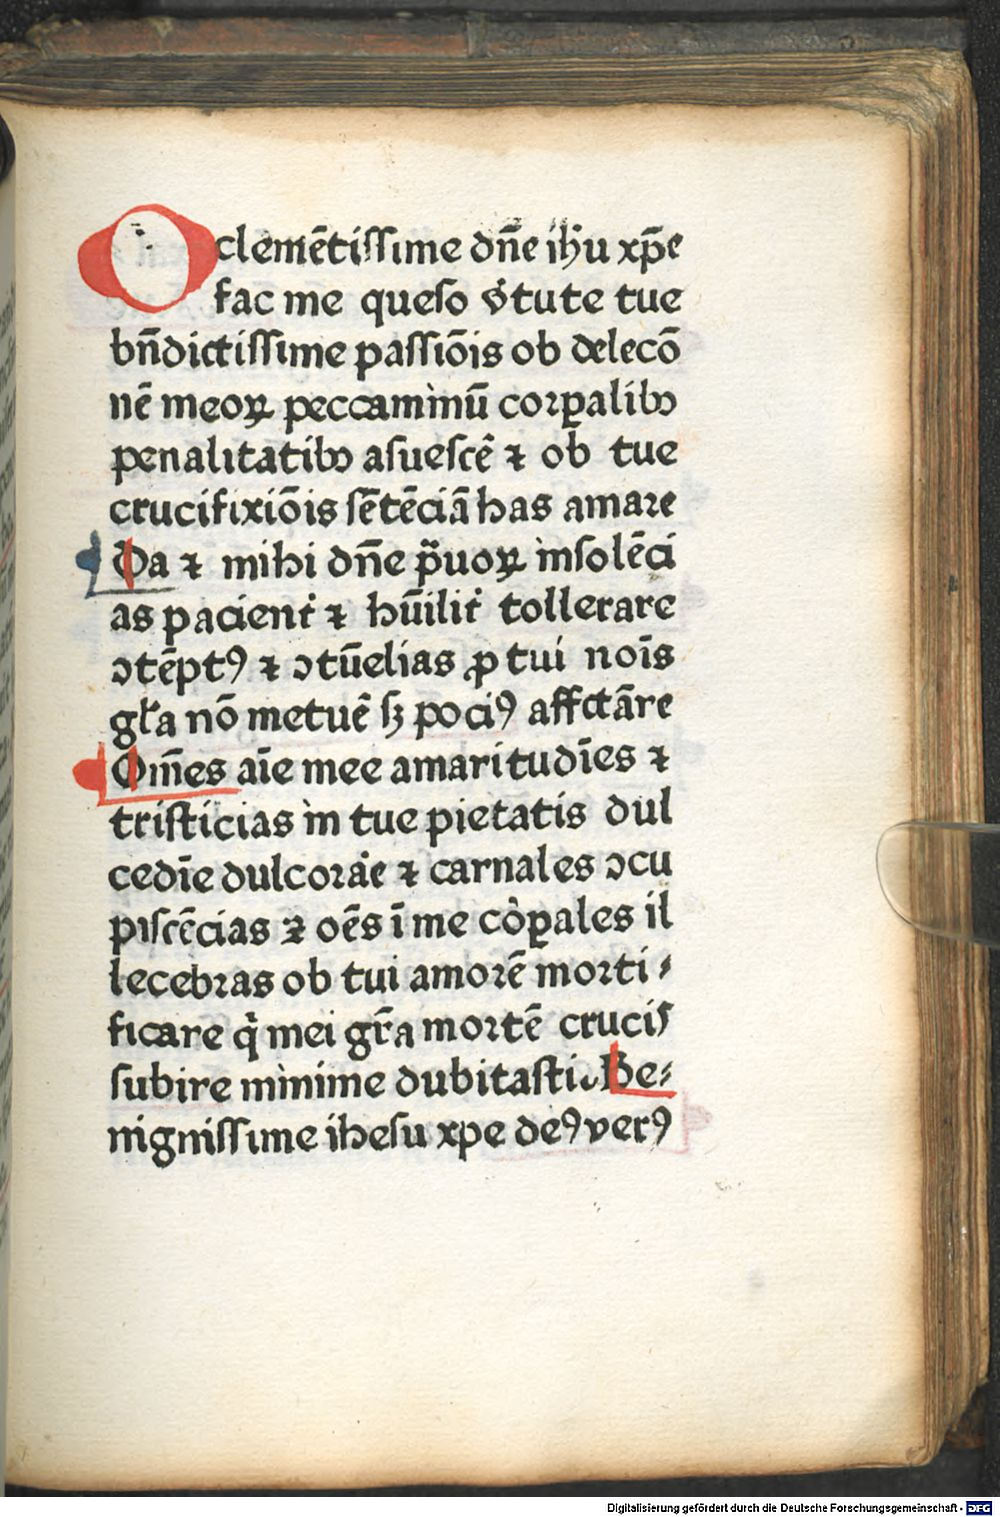 O clemētissime dn̄e ih̄u xp̄e
fac me queso v̓tute tue
bn̄dictissime passiōis ob delecō
nē meoꝝ peccaminū corꝑalibꝫ
penalitatibꝫ asuescē ⁊ ob tue
crucifixiōis sētēciā has amare
Da ⁊ mihi dn̄e p̄uoꝝ insolēci
as pacient̓ ⁊ hūilit̓ tollerare
ↄtēptꝰ ⁊ ↄtūelias ꝓ tui noīs
gl̓a nō metuē sꝫ pociꝰ affctāre
Om̄es aīe mee amaritudīes ⁊
tristicias in tue pietatis dul
cedīe dulcorar̓e ⁊ carnales ↄcu
piscēcias ⁊ oēs ī me cor̓ꝑales il
lecebras ob tui amorē morti⸗
ficare q̇ mei gr̄a mortē crucis
subire minime dubitasti. Be⸗
nignissime ihesu xpe deꝰ verꝰ
Digitalisierung gefördert durch die Deutsche Forschungsgemeinschaft - DFG